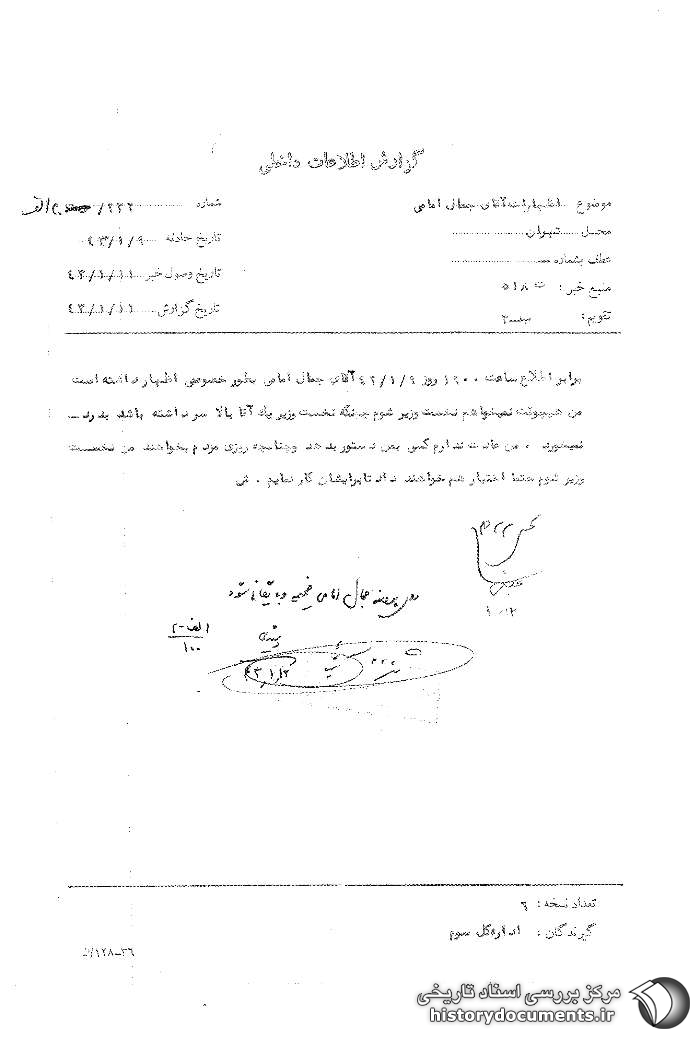 گزارش اطلاعات داخلی
موضوع اظهارات آقای جمال امامی
شماره ۲۲۲/ الف
محل تهران
تاریخ حادثه ۴۳/۱/۹
عطف بشماره
تاریخ وصول خبر ۴۳/۱/۱۱
منبع خبر: ۵۱۸
تاریخ گزارش ۴۳/۱/۱۱
تقویم:
برابر اطلاع ساعت ۱۲۰۰ روز ۴۳/۱/۹ آقای جمال امامی بطور خصوصی اظهار داشته است
من هیچوقت نمیخواهم نخست وزیر شوم چونکه نخست وزیر یک آقا بالا سر داشته باشد بدرد
نمیخورد . من عادت ندارم کسی بمن دستور بدهد وچنانچه روزی مردم بخواهند من نخست
وزیر شوم حتما اختیار هم خواهند داد تا برایشان کار نمایم . ش
جمال امامی ضمیمه و بایگانی شود
الف-۲
۱۰۰
۴۳/۱/۱۲
تعداد نسخه: ۶
گیرندگان: اداره کل سوم
۳۶-۱۲۸/
مرکز بررسی اسناد تاریخی
historydocuments.ir